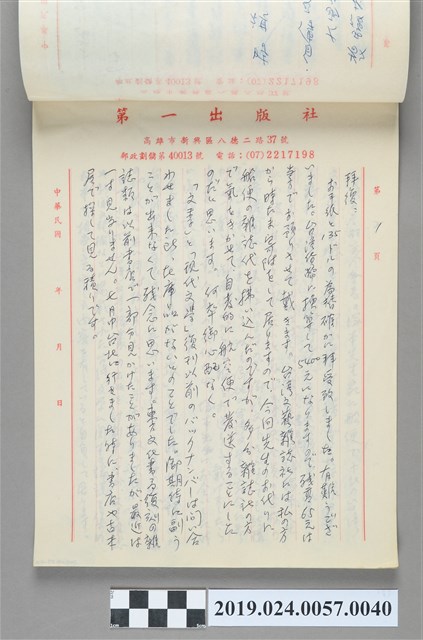 第一出版社
高雄市新興區八德二路37號
郵政劃撥第40013號 電話：(07)2217198
第 1 頁
拝復、
お手紙と35ドルの為替確かに拝受致しました。有難うござ
いました。台湾貨幣に換算して1400元になりますので残高65元は
李でお預りさせて戴きます。台湾文藝雜誌社には私の方
から時たま寄附をして居りますので、今回先生のお代りに
船便の雑誌代を払い込んだのですが、多分雑誌社の方
で気をきかせて、自発的に航空便で発送することにした
のだと思います。何卒御心配なく。
「文季」と「現代文学」復刊以前のバックナンバーは問い合
わせましたが、在庫品がないとのことでした。御期待に副う
ことが出来なくて残念に思います。東方文化書局復刻の雑
誌類は以前書店で一部分見かけたことがありましたが、最近は
一寸見当りません。七月中台北に行きました時に、書店や古本
屋で探して見る積りです。
中華民國 年 月 日
2019.024.0057.0040